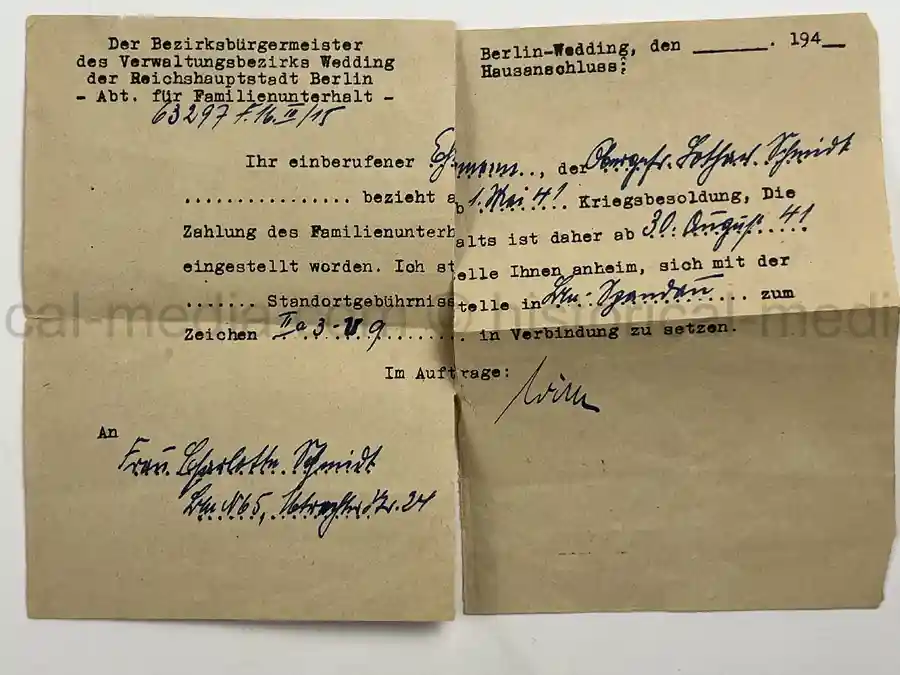 Der Bezirksbürgermeister
des Verwaltungsbezirks Wedding
der Reichshauptstadt Berlin
- Abt. für Familienunterhalt -
63297 f. 16. II/15
Berlin-Wedding, den _______. 194__
Hausanschluss:
Ihr einberufener Ehemann.., der Obergefr. Lothar Schmidt
................ bezieht ab 1. Mai 41 ..... Kriegsbesoldung, Die
Zahlung des Familienunterhalts ist daher ab 30. August 41
eingestellt worden. Ich stelle Ihnen anheim, sich mit der
....... Standortgebührnisstelle in Bln.-Spandau .... zum
Zeichen IIa 3 - U 9 ........ in Verbindung zu setzen.
Im Auftrage:
An
Frau Charlotte Schmidt
Bln N 65, Utrechter Str. 24
cal-medi © historical-medi